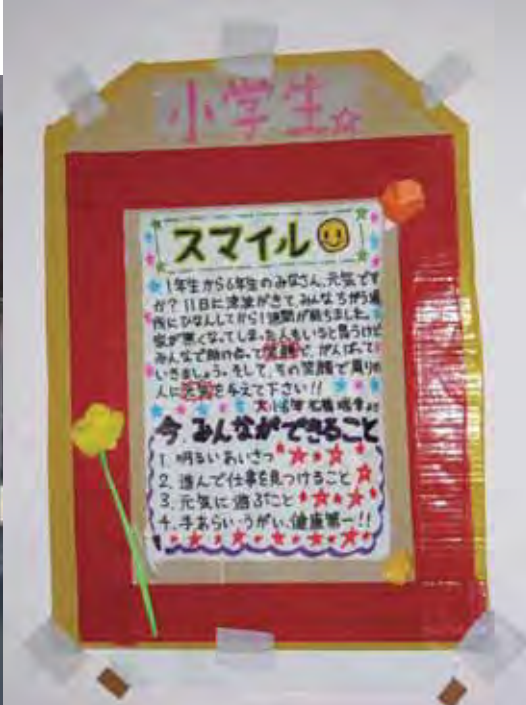 小学生☆
スマイル
1年生から6年生のみなさん、元気です
か？11日に津波がきて、みんなちがう場
所にひなんしてから1週間が経ちました。
家が無くなってしまった人もいると思うけど
みんなで助け合って笑顔で、がんばって
いきましょう。そして、その笑顔で周りの
人に元気を与えて下さい!!
今、みんなができること
1. 明るいあいさつ
2. 進んで仕事を見つけること
3. 元気に遊ぶこと
4. 手あらい、うがい、健康第一!!